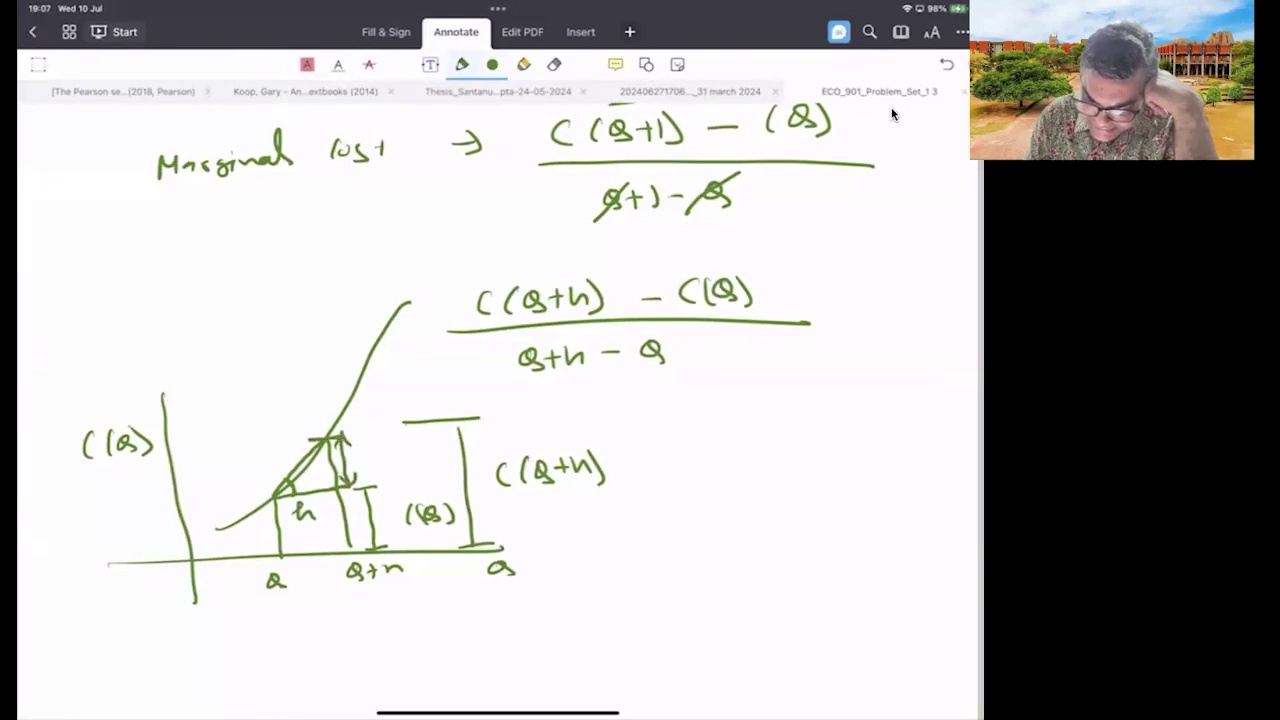 19:07 Wed 10 Jul
98%
Start
Fill & Sign Annotate Edit PDF Insert
[The Pearson se...(2018, Pearson) Koop, Gary - An...extbooks (2014) Thesis_Santanu...pta-24-05-2024 202406271706..._31 march 2024 ECO_901_Problem_Set_1 3
Marginal cost → C(Q+1) - (Q)
Q+1-Q
C(Q+h) - C(Q)
Q+h - Q
C(Q)
C(Q+h)
h C(Q)
Q Q+h Q